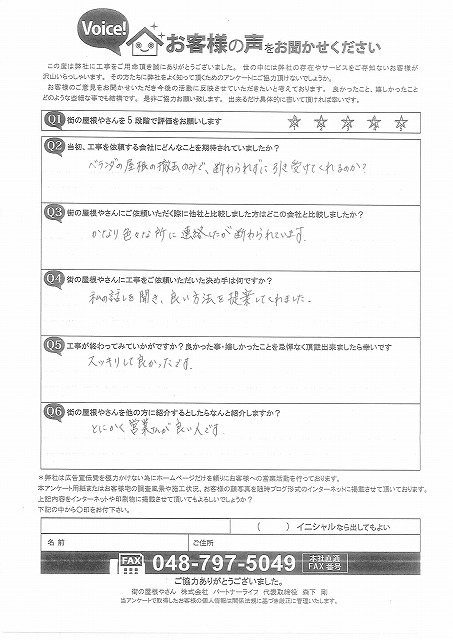 Voice!
お客様の声をお聞かせください
この度は弊社に工事をご用命頂き誠にありがとうございました。世の中には弊社の存在やサービスをご存知ないお客様が
沢山いらっしゃいます。その方たちに弊社をよく知って頂くためのアンケートにご協力頂けないでしょうか。
お客様のご意見をお聞かせいただき今後の活動に反映させていただきたいと考えております。良かったこと、嬉しかったこと
どのような些細な事でも結構です。是非ご協力お願い致します。出来るだけ具体的に書いて頂ければ幸いです。
Q1 街の屋根やさんを5段階で評価をお願いします ☆ ☆ ☆ ☆ ☆
Q2 当初、工事を依頼する会社にどんなことを期待されていましたか?
ベランダの屋根の撤去のみで、断わられずに引き受けてくれるのか?
Q3 街の屋根やさんにご依頼いただく際に他社と比較しました方はどこの会社と比較しましたか?
かなり色々な所に連絡したが断わられています。
Q4 街の屋根やさんに工事をご依頼いただいた決め手は何ですか?
私の話しを聞き、良い方法を提案してくれました。
Q5 工事が終わってみていかがですか?良かった事・嬉しかったことを忌憚なく頂戴出来ましたら幸いです
スッキリして良かったです。
Q6 街の屋根やさんを他の方に紹介するとしたらなんと紹介しますか?
とにかく営業さんが良い人です。
*弊社は広告宣伝費を極力かけない為にホームページだけを頼りにお客様への営業活動を行っております。
本アンケート用紙またはお客様宅の調査風景や施工状況、お客様の顔写真を随時ブログ形式のインターネットに掲載させて頂いております。
上記内容をインターネットや印刷物に掲載させて頂いてもよろしいでしょうか?
下記の中から○印をお付下さい。
( ) イニシャルなら出してもよい
名前 ご住所
FAX 048-797-5049 本社直通 FAX番号
ご協力ありがとうございました。
街の屋根やさん 株式会社 パートナーライフ 代表取締役 森下 剛
当アンケートで取得したお客様の個人情報は関係法規に基づき厳正に管理いたします。